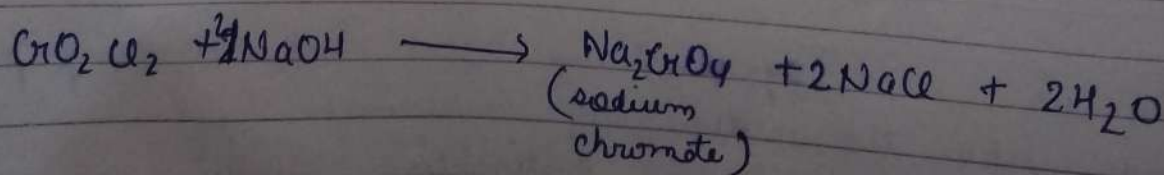 CrO2 Cl2 + 4NaOH ⟶ Na2CrO4 + 2NaCl + 2H2O
(sodium
chromate)